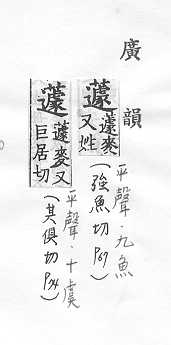 廣韻
蘧 蘧麥又姓
平聲·九魚
(強魚切 P67)
蘧 蘧麥又巨居切
平聲·十虞
(其俱切 P74)